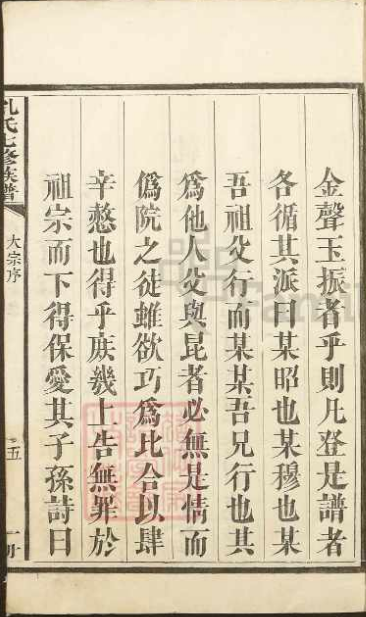 金聲玉振者乎則凡登是譜者
各循其派曰某昭也某穆也某
吾祖父行而某某吾兄行也其
爲他人父與昆者必無是情而
僞院之徒雖欲巧爲比合以肆
辛憝也得乎庻幾上告無罪於
祖宗而下得保愛其子孫詩曰
孔氏七修族譜
大宗序
五